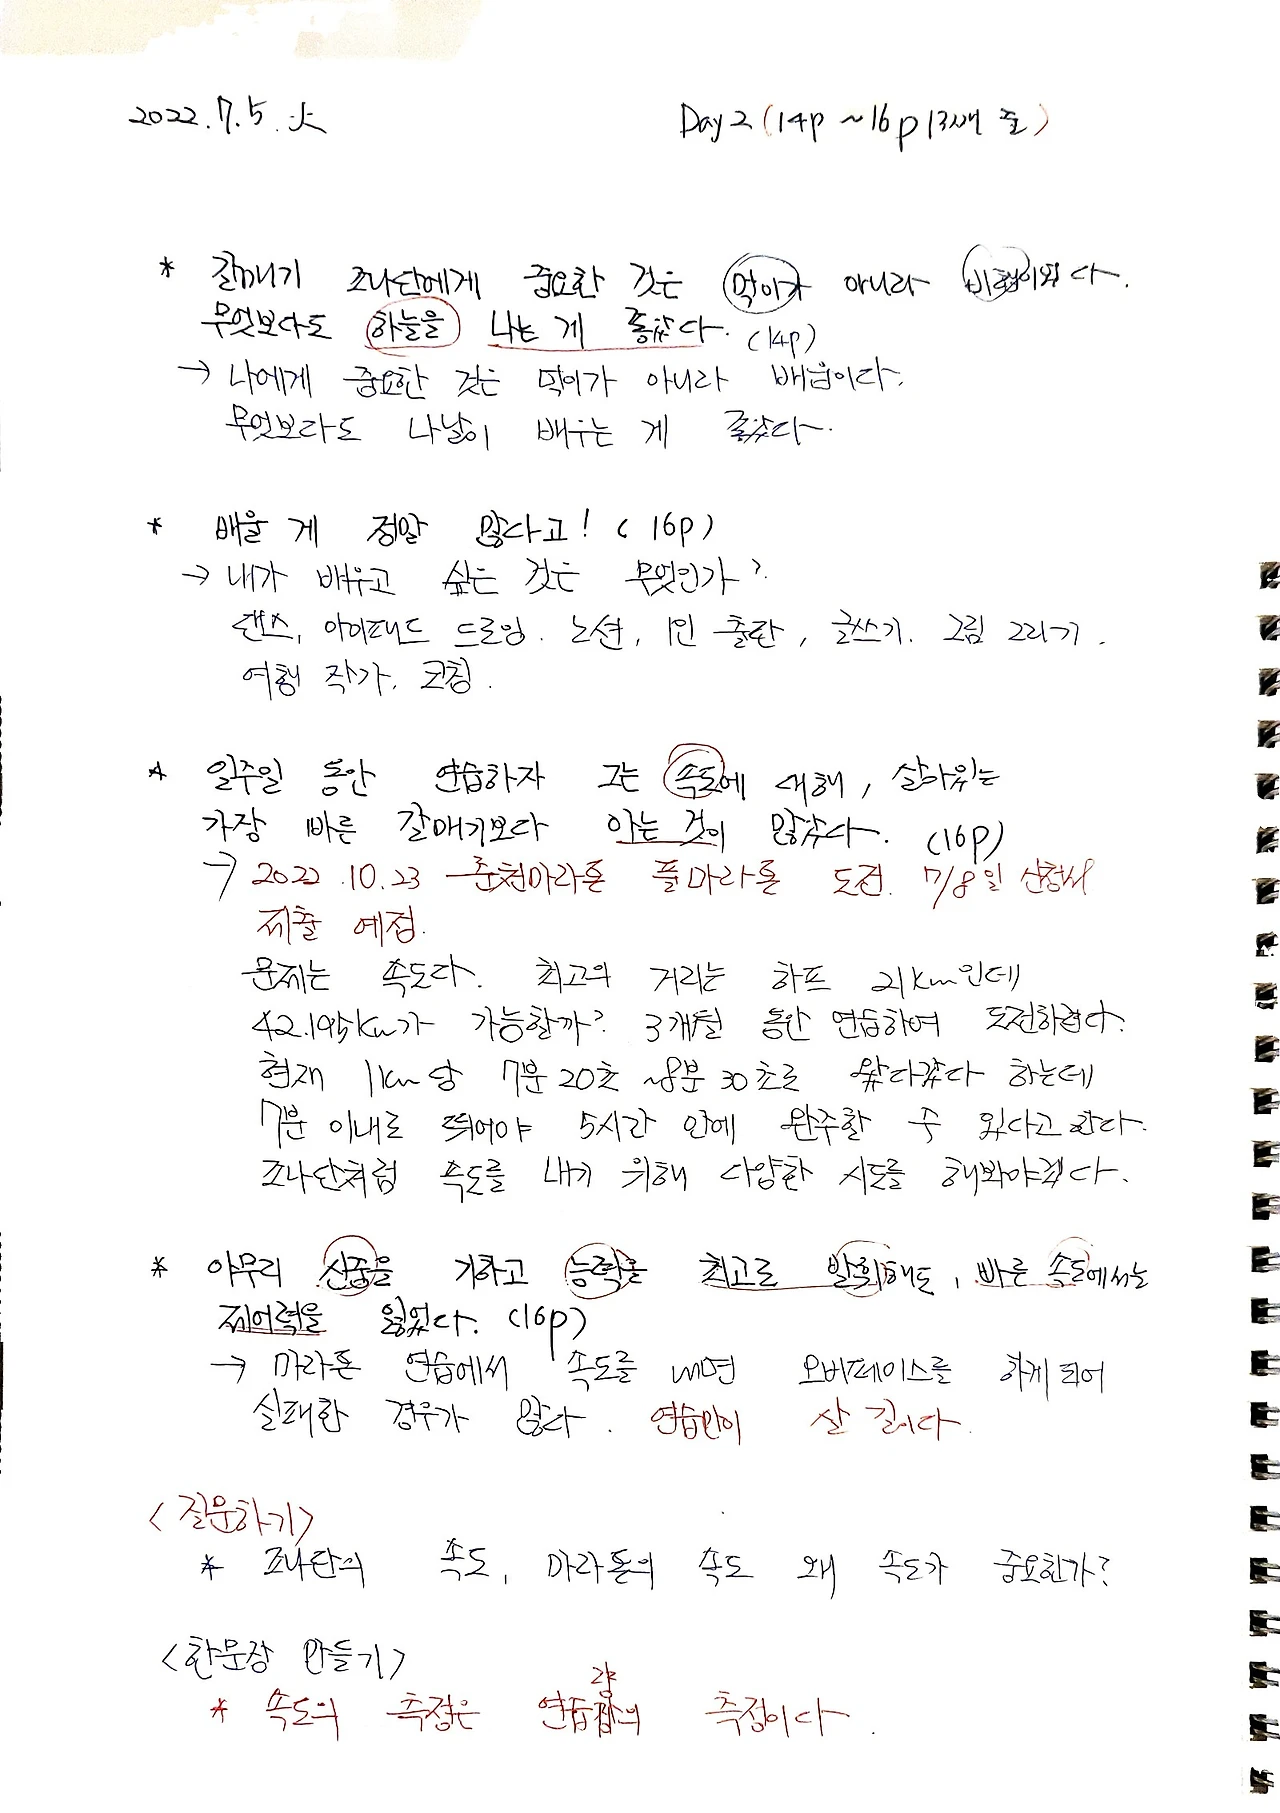 2022.7.5.火
Day 2 (14p ~16p 13째 줄)
* 갈매기 조나단에게 중요한 것은 먹이가 아니라 비행이었다.
무엇보다도 하늘을 나는 게 좋았다. (14p)
→ 나에게 중요한 것은 먹이가 아니라 배움이다.
무엇보다도 나날이 배우는 게 좋았다.
* 배울 게 정말 많다고! (16p)
→ 내가 배우고 싶은 것은 무엇인가?
댄스, 아이패드 드로잉. 노션, 1인 출판, 글쓰기. 그림 그리기.
여행 작가. 코칭.
* 일주일 동안 연습하자 그는 속도에 대해, 살아있는
가장 빠른 갈매기보다 아는 것이 많았다. (16p)
→ 2022.10.23 춘천마라톤 풀마라톤 도전. 7/8일 신청서
제출 예정.
문제는 속도다. 최고의 거리는 하프 21km인데
42.195km가 가능할까? 3개월 동안 연습하여 도전하련다.
현재 1km당 7분20초~8분30초로 왔다갔다 하는데
7분 이내로 뛰어야 5시간 안에 완주할 수 있다고 한다.
조나단처럼 속도를 내기 위해 다양한 시도를 해봐야겠다.
* 아무리 신중을 기하고 능력을 최고로 발휘해도, 빠른 속도에서는
제어력을 잃었다. (16p)
→ 마라톤 연습에서 속도를 내면 오버페이스를 하게 되어
실패한 경우가 많다. 연습만이 살 길이다.
<질문하기>
* 조나단의 속도, 마라톤의 속도 왜 속도가 중요한가?
<한문장 만들기>
* 속도의 측정은 연습량의 측정이다.